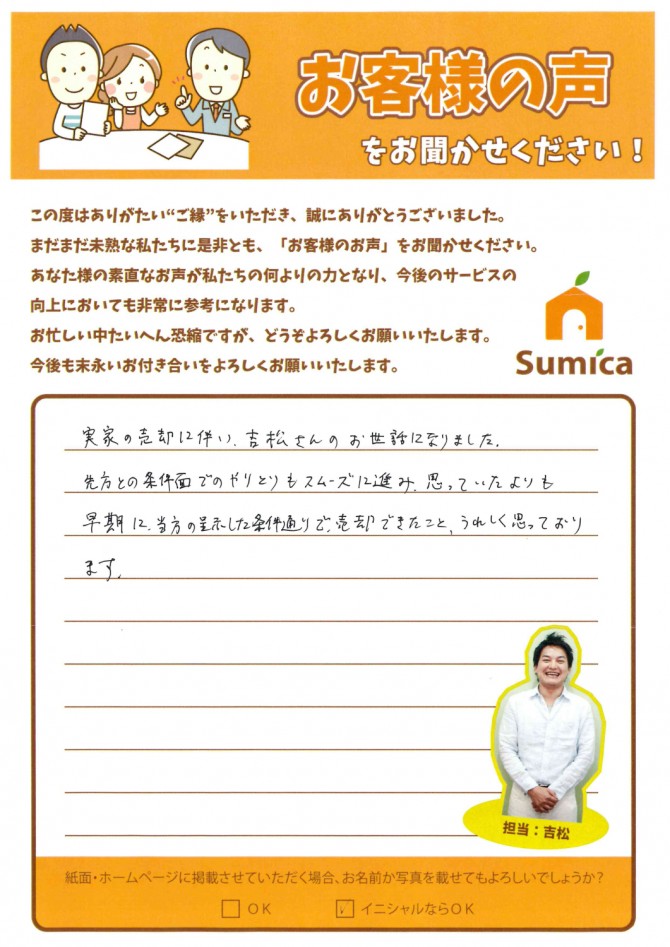 お客様の声
をお聞かせください！
この度はありがたい“ご縁”をいただき、誠にありがとうございました。
まだまだ未熟な私たちに是非とも、「お客様のお声」をお聞かせください。
あなた様の素直なお声が私たちの何よりの力となり、今後のサービスの
向上においても非常に参考になります。
お忙しい中たいへん恐縮ですが、どうぞよろしくお願いいたします。
今後も末永いお付き合いをよろしくお願いいたします。
Sumica
実家の売却に伴い、吉松さんのお世話になりました。
先方との条件面でのやりとりもスムーズに進み、思っていたよりも
早期に、当方の呈示した条件通りで、売却できたこと、うれしく思っており
ます。
担当：吉松
紙面・ホームページに掲載させていただく場合、お名前か写真を載せてもよろしいでしょうか？
□ OK ☑ イニシャルならOK